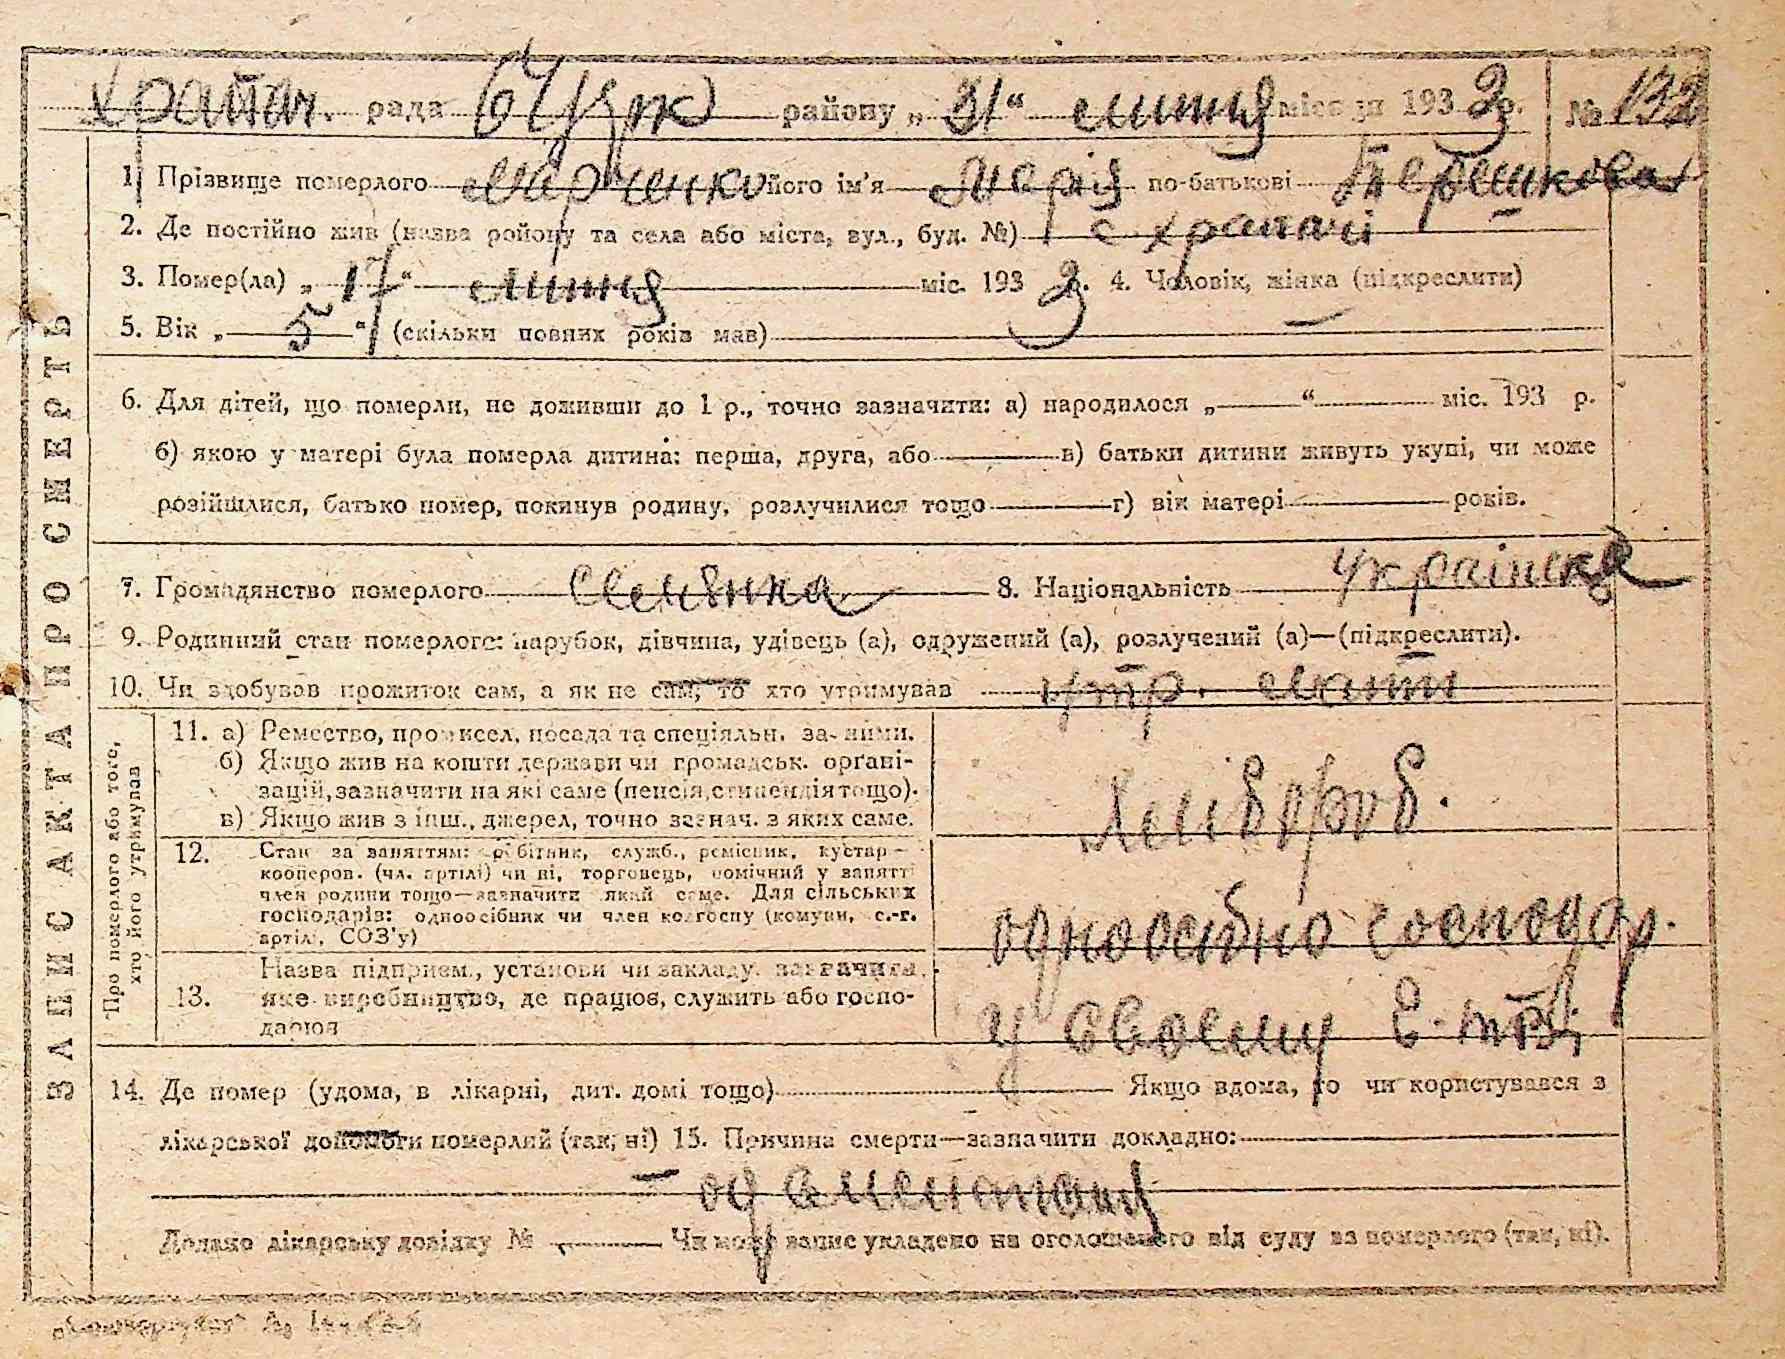 Храпач. рада БЦерк району „31“ липня міся ця 1933 р. № 132
1. Прізвище померлого Марченко його ім'я Марія по-батькові Терешкова
2. Де постійно жив (назва району та села або міста, вул., буд. №) с Храпачі
3. Помер(ла) „17“ липня міс. 1933 р. 4. Чоловік, жінка (підкреслити)
5. Вік „5“ (скільки повних років мав)
6. Для дітей, що померли, не доживши до 1 р., точно зазначити: а) народилося „ “ міс. 193 р.
б) якою у матері була померла дитина: перша, друга, або в) батьки дитини живуть укупі, чи може
розійшлися, батько помер, покинув родину, розлучилися тощо г) вік матері років.
7. Громадянство померлого 8. Національність українка
9. Родинний стан померлого: парубок, дівчина, удівець (а), одружений (а), розлучений (а)—(підкреслити).
10. Чи здобував прожиток сам, а як не сам, то хто утримував утр. мати
11. а) Ремество, промисел, посада та спеціяльн. за ними.
б) Якщо жив на кошти держави чи громадськ. органі-
зацій, зазначити на які саме (пенсія, стипендія тощо).
в) Якщо жив з інш., джерел, точно зазнач. з яких саме.
Хлібороб.
12. Стан за заняттям: робітник, служб., ремісник, кустар—
кооперов. (чл. артілі) чи ні, торговець, помічний у занятті
член родини тощо—зазначити який саме. Для сільських
господарів: одноосібник чи член колгоспу (комуни, с.-г.
артілі, СОЗ'у)
одноосібно господар.
13. Назва підприєм., установи чи закладу, зазначити,
яке виробництво, де працює, служить або госпо-
дарює
у своєму г-тві
14. Де помер (удома, в лікарні, дит. домі тощо) Якщо вдома, то чи користувався з
лікарської допомоги померлий (так, ні) 15. Причина смерти—зазначити докладно:
од
Додано лікарську довідку № Чи може запис укладено на оголошеного від суду за померлого (так, ні).
ЗАПИС АКТА ПРО СМЕРТЬ
Про померлого або того,
хто його утримував